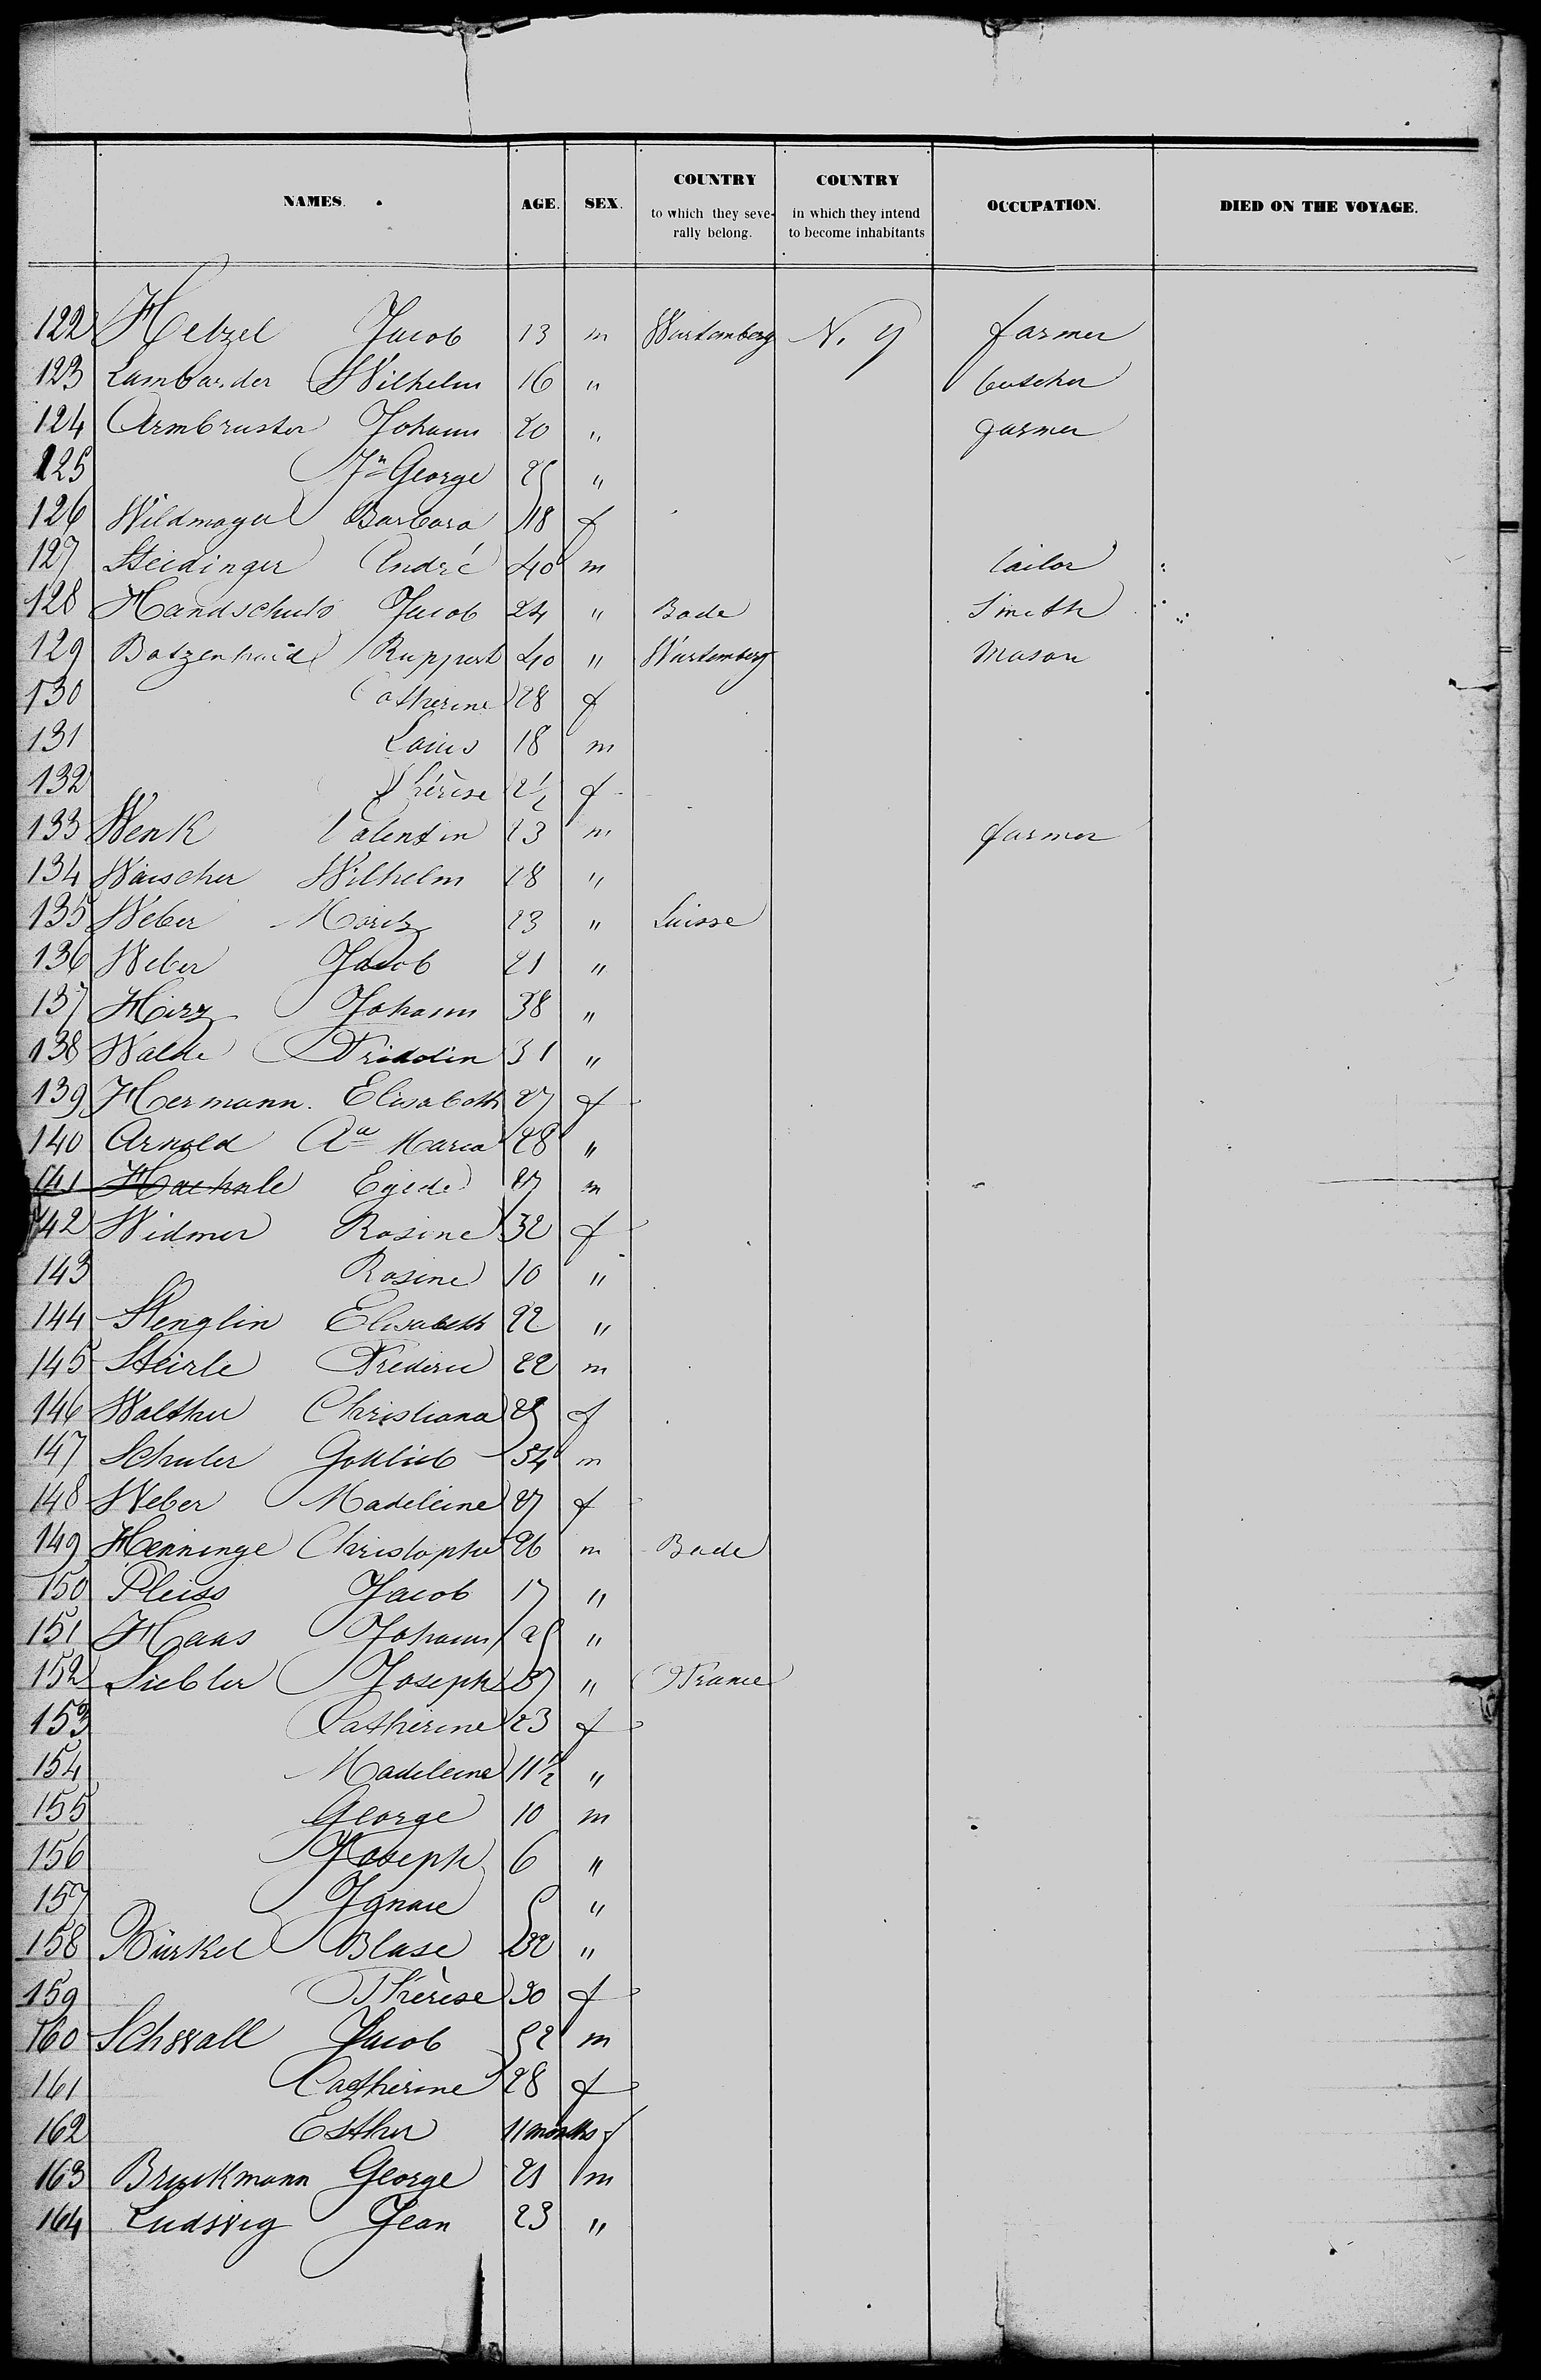 NAMES. AGE. SEX. COUNTRY to which they seve-rally belong. COUNTRY in which they intend to become inhabitants OCCUPATION. DIED ON THE VOYAGE.
122 Hetzel Jacob 13 m Wurtemberg N. Y farmer
123 Lambarder Wilhelm 16 " butcher
124 Armbruster Johann 20 " farmer
125 Jn George 25 "
126 Wildmayer Barbara 18 f
127 Steidinger André 40 m tailor
128 Handschuh Jacob 24 " Bade Smith
129 Batzenhaid Ruppert 40 " Wurtemberg Mason
130 Catherine 28 f
131 Louis 18 m
132 Thérèse 2½ f
133 Wenk Valentin 23 m farmer
134 Wäischer Wilhelm 28 "
135 Weber Moritz 23 " Suisse
136 Weber Jacob 21 "
137 Hirz Johann 38 "
138 Walde Fridolin 31 "
139 Hermann. Elisabeth 27 f
140 Arnold Aa Maria 28 "
141 Haehnle Egide 27 m
142 Widmer Rosine 32 f
143 Rosine 10 "
144 Stenglin Elisabeth 22 "
145 Steirle Frederic 22 m
146 Walther Christiana 25 f
147 Schuler Gottlieb 34 m
148 Weber Madeleine 27 f
149 Henninge Christophe 26 m Bade
150 Pleiss Jacob 17 "
151 Haas Johann 25 "
152 Siebler Joseph 37 " France
153 Catherine 23 f
154 Madeleine 11½ "
155 George 10 m
156 Joseph 6 "
157 Ignace 5 "
158 Bürkel Blase 32 "
159 Thérèse 30 f
160 Schwall Jacob 52 m
161 Catherine 28 f
162 Esther 11 months f
163 Bruckmann George 21 m
164 Ludwig Jean 23 "